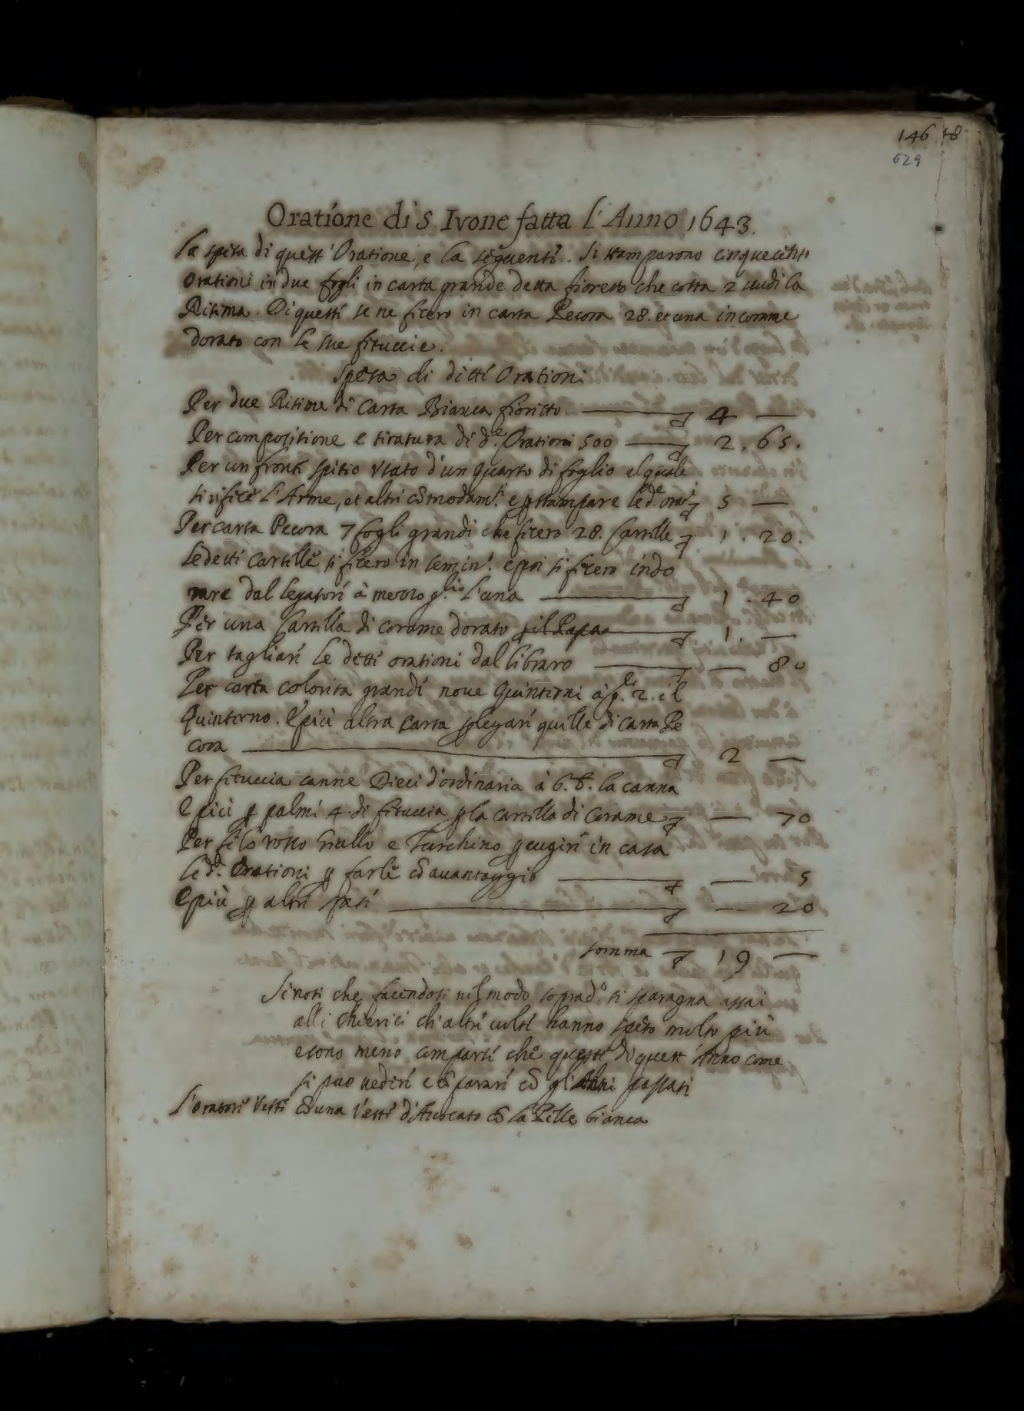 146 48
629
Oratione di S. Ivone fatta l'Anno 1643.
La spesa di quest'Oratione, e la seguente. Si stamparono cinquecento
orationi in due fogli in carta grande detta fioretto che costa 2 scudi la
Risima. Di questi se ne fecero in carta Pecora 28. et una in corame
dorato con le sue fituccie.
Spesa di dette Orationi
Per due Risime di Carta Bianca fioretto 4 —
Per compositione e tiratura di d.e Orationi 500 2.65.
Per un frontispitio usato d'un quarto di foglio el quale
si rifece l'Arme, et altri cõmodam.ti e p stampare le d.e orat.i 5 —
Per carta Pecora 7 fogli grandi che fecero 28. Cartelle 1.20.
Le dette Cartelle si fecero in e poi si fecero indo
rare dal legatore à mezzo l'una 1.40
Per una Cartella di corame dorato p il Papa 1. —
Per tagliare le dette orationi dal libraro — 80
Per carta colorita grande nove Quinterni à 2. il
Quinterno. E più altra carta p legare quelle di carta Pe
cora 2 —
Per fituccia canne Dieci d'ordinaria à 6. b. la canna
E più p palmi 4 di fituccia p la cartella di Corame — 70
Per filo rosso Giallo e Turchino p cugire in casa
le d.e Orationi p farle cõ avantaggio — 5
E più p altre spese — 20
somma 19 —
Si noti che facendosi nel modo soprad.o si sparagna assai
alli chierici ch'altre volte hanno speso molto più
e sono meno comparse che queste di quest'Anno come
si può vedere e cõparare cõ gli Anni passati
L'oratore Veste cõ una veste d'Avocato cõ la Pelle bianca